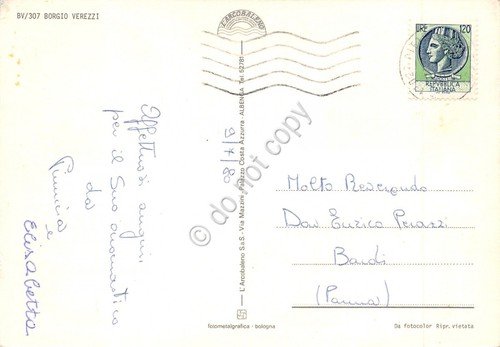 BV/307 BORGIO VEREZZI
L'ARCOBALENO
LIRE 120
REPVBBLICA
ITALIANA
Affettuosi auguri
per il Suo onomastico
da
Pinuccia
e
Elisabetta
9/7/80
L'Arcobaleno S.a.S - Via Mazzini, Palazzo Costa Azzurra - ALBENGA - Tel. 52781
Molto Reverendo
Don Enrico Perazzi
Bardi
(Parma)
do not copy
fotometalgrafica - bologna
Da fotocolor Ripr. vietata